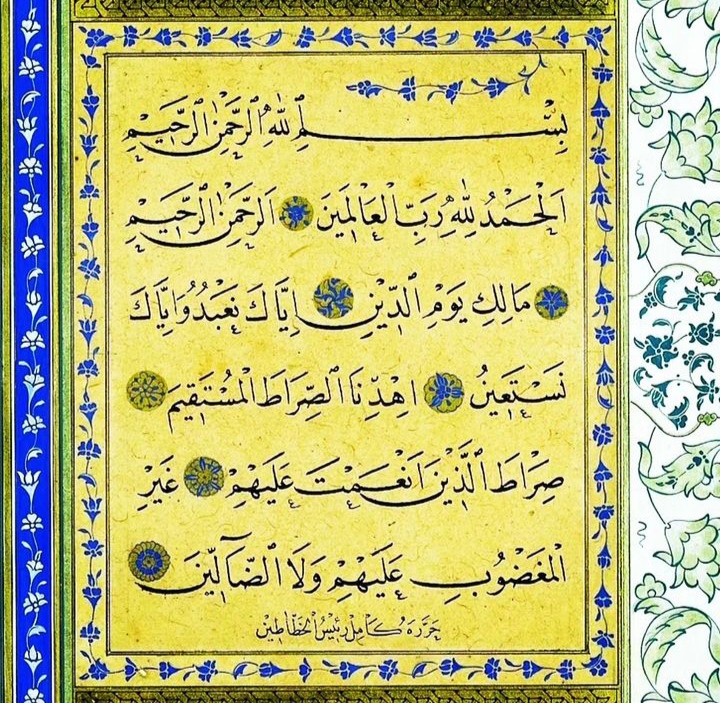 بِسْمِ ٱللّٰهِ ٱلرَّحْمٰنِ ٱلرَّحِيمِ
اَلْحَمْدُ لِلّٰهِ رَبِّ الْعَالَمِينَ اَلرَّحْمٰنِ الرَّحِيمِ
مَالِكِ يَوْمِ الدِّينِ اِيَّاكَ نَعْبُدُ وَاِيَّاكَ
نَسْتَعِينُ اِهْدِنَا الصِّرَاطَ الْمُسْتَقِيمَ
صِرَاطَ الَّذِينَ اَنْعَمْتَ عَلَيْهِمْ غَيْرِ
الْمَغْضُوبِ عَلَيْهِمْ وَلَا الضَّآلِّينَ
حَرَّرَهُ كَامِل رَئِيسُ الْخَطَّاطِين